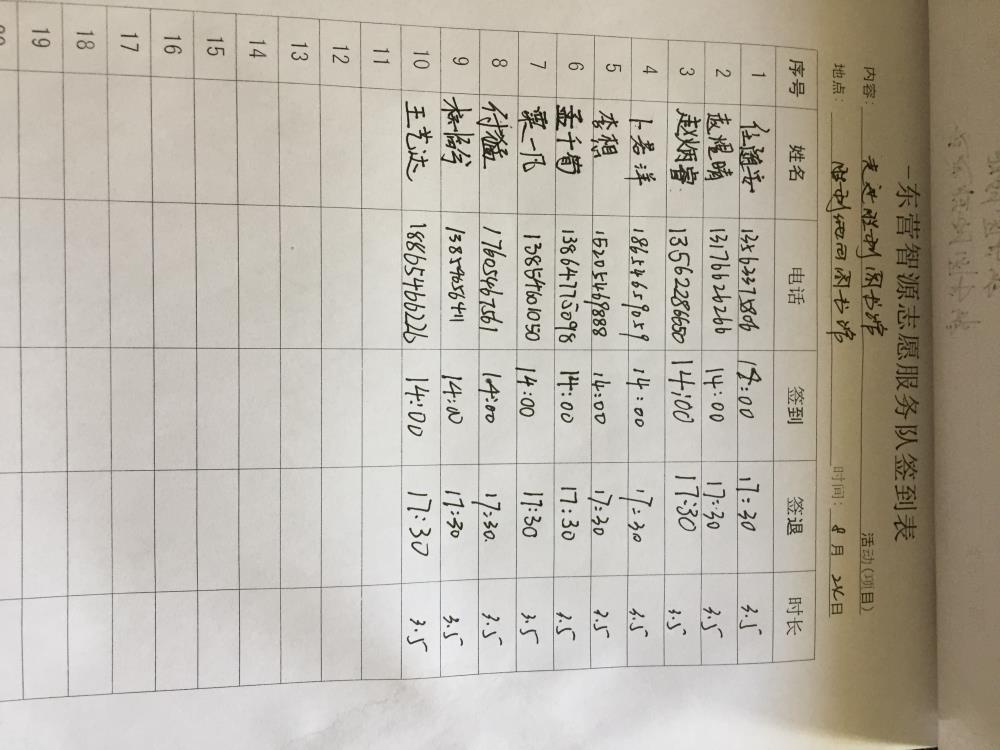 东营智源志愿服务队签到表
活动(项目)
内容: 走进胜利图书馆
地点: 胜利 图书馆 时间: 8月24日
序号 姓名 电话 签到 签退 时长
1 13562337586 14:00 17:30 3.5
2 13176626266 14:00 17:30 3.5
3 赵炳睿 13562286650 14:00 17:30 3.5
4 卜君洋 18654659059 14:00 17:30 3.5
5 李想 15205469888 14:00 17:30 3.5
6 孟千荀 13864775098 14:00 17:30 3.5
7 栗一凡 13854601050 14:00 17:30 3.5
8 付猛 17605467561 14:00 17:30 3.5
9 13854656411 14:00 17:30 3.5
10 王艺达 18865466226 14:00 17:30 3.5
11
12
13
14
15
16
17
18
19